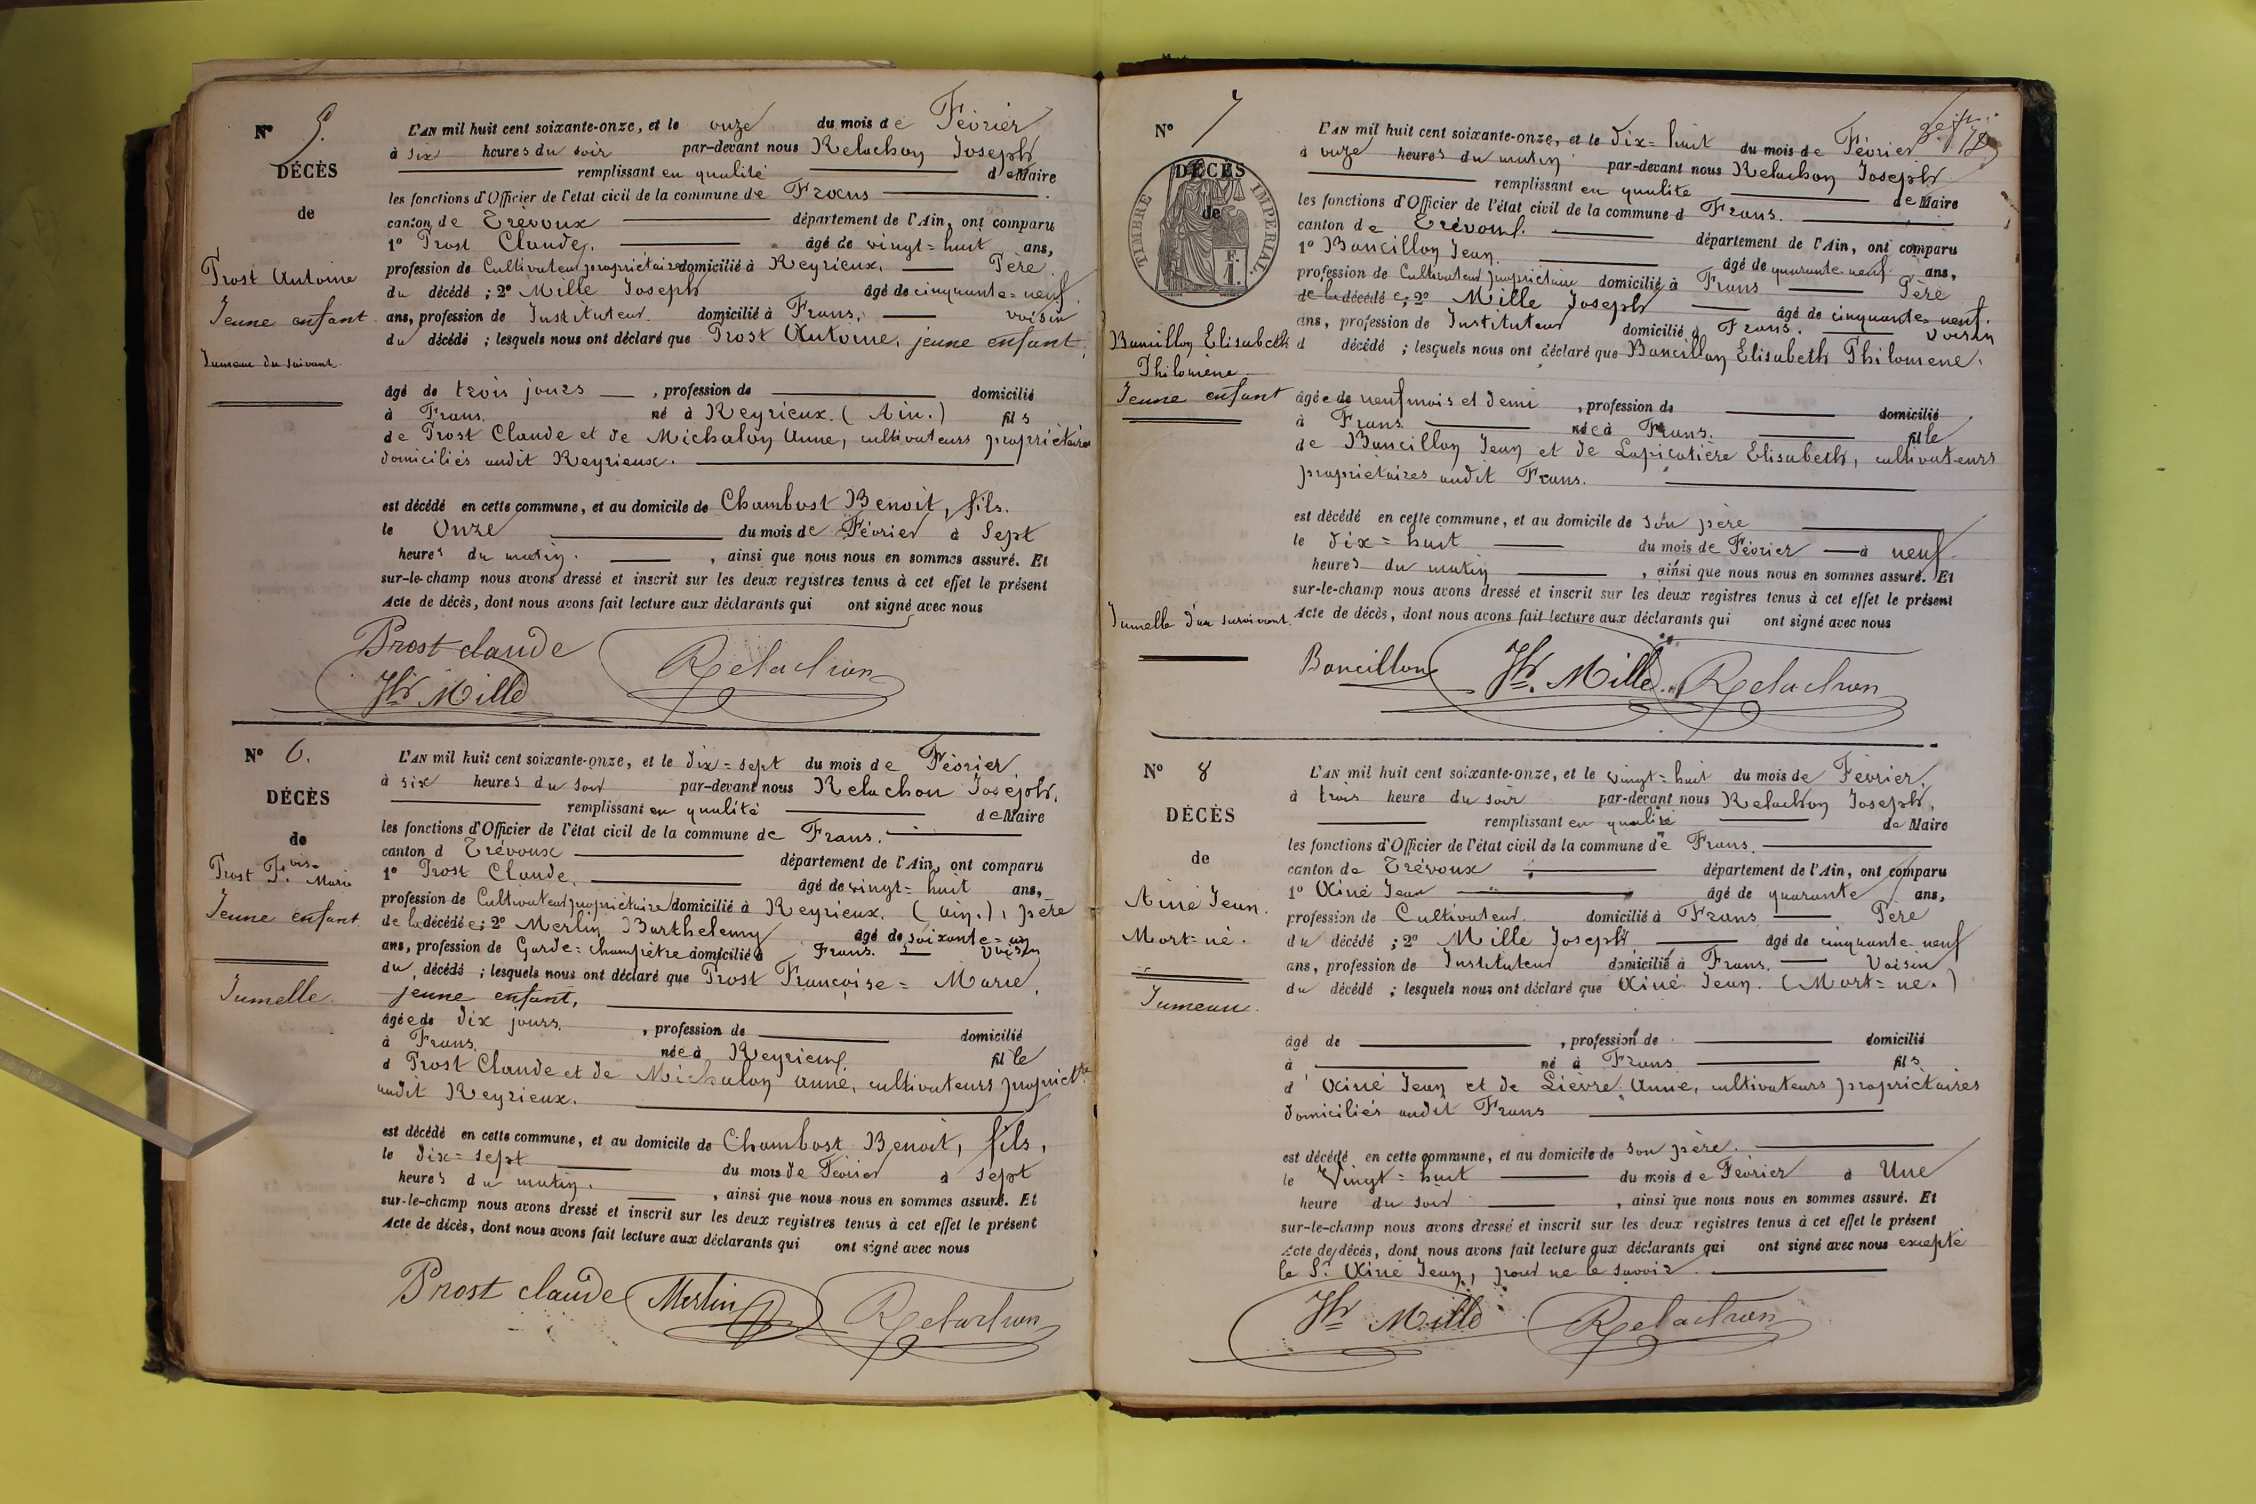 N° 5.
DÉCÈS
de
Prost Antoine
Jeune enfant
Jumeau du suivant.
L'AN mil huit cent soixante-onze, et le onze du mois de Février
à six heures du soir par-devant nous Relachon Joseph
remplissant en qualité de Maire
les fonctions d'Officier de l'état civil de la commune de Frans
canton de Trévoux département de l'Ain, ont comparu
1° Prost Claude. âgé de vingt=huit ans,
profession de Cultivateur propriétaire domicilié à Reyrieux. Père
du décédé ; 2° Mille Joseph âgé de cinquante=neuf
ans, profession de Instituteur domicilié à Frans, voisin
du décédé ; lesquels nous ont déclaré que Prost Antoine, jeune enfant,
âgé de trois jours , profession de domicilié
à Frans. né à Reyrieux. (Ain.) fils
de Prost Claude et de Michalon Anne, cultivateurs propriétaires
domiciliés audit Reyrieux.
est décédé en cette commune, et au domicile de Chambost Benoit, fils.
le Onze du mois de Février à Sept
heures du matin. , ainsi que nous nous en sommes assuré. Et
sur-le-champ nous avons dressé et inscrit sur les deux registres tenus à cet effet le présent
Acte de décès, dont nous avons fait lecture aux déclarants qui ont signé avec nous
Prost claude Relachon
Jh Mille
N° 6.
DÉCÈS
de
Prost F.çoise Marie
Jeune enfant
Jumelle.
L'AN mil huit cent soixante-onze, et le dix=sept du mois de Février
à six heures du soir par-devant nous Relachon Joseph,
remplissant en qualité de Maire
les fonctions d'Officier de l'état civil de la commune de Frans.
canton d Trévoux département de l'Ain, ont comparu
1° Prost Claude. âgé de vingt=huit ans,
profession de Cultivateur propriétaire domicilié à Reyrieux. (Ain.), père
de la décédée ; 2° Merlin Barthelemy âgé de soixante=un
ans, profession de Garde=champêtre domicilié à Frans. Voisin
du décédé ; lesquels nous ont déclaré que Prost Françoise=Marie,
jeune enfant,
âgée de dix jours. , profession de domicilié
à Frans. née à Reyrieux. fille
d Prost Claude et de Michalon Anne, cultivateurs propriét.res
audit Reyrieux.
est décédé en cette commune, et au domicile de Chambost Benoit, fils,
le dix=sept du mois de Février à sept
heures du matin. , ainsi que nous nous en sommes assuré. Et
sur-le-champ nous avons dressé et inscrit sur les deux registres tenus à cet effet le présent
Acte de décès, dont nous avons fait lecture aux déclarants qui ont signé avec nous
Prost claude Merlin Relachon
N° 7
DÉCÈS
de
TIMBRE IMPERIAL
F. 1.
Bancillon Elisabeth
Philomène
Jeune enfant
Jumelle d'un survivant.
L'AN mil huit cent soixante-onze, et le dix=huit du mois de Février
à onze heures du matin par-devant nous Relachon Joseph
remplissant en qualité de Maire
les fonctions d'Officier de l'état civil de la commune d Frans.
canton de Trévoux. département de l'Ain, ont comparu
1° Bancillon Jean. âgé de quarante neuf ans,
profession de Cultivateur propriétaire domicilié à Frans Père
de la décédée ; 2° Mille Joseph âgé de cinquante=neuf.
ans, profession de Instituteur domicilié à Frans. Voisin
d décédé ; lesquels nous ont déclaré que Bancillon Elisabeth Philomène.
âgée de neuf mois et demi , profession de domicilié
à Frans née à Frans. fille
de Bancillon Jean et de Lapicotière Elisabeth, cultivateurs
propriétaires audit Frans.
est décédé en cette commune, et au domicile de son père
le dix=huit du mois de Février à neuf
heures du matin , ainsi que nous nous en sommes assuré. Et
sur-le-champ nous avons dressé et inscrit sur les deux registres tenus à cet effet le présent
Acte de décès, dont nous avons fait lecture aux déclarants qui ont signé avec nous
Bancillon Jh. Mille Relachon
N° 8
DÉCÈS
de
Ainé Jean.
Mort=né.
Jumeau.
L'AN mil huit cent soixante-onze, et le vingt=huit du mois de Février,
à trois heure du soir par-devant nous Relachon Joseph,
remplissant en qualité de Maire
les fonctions d'Officier de l'état civil de la commune de Frans.
canton de Trévoux département de l'Ain, ont comparu
1° Ainé Jean âgé de quarante ans,
profession de Cultivateur. domicilié à Frans Père
du décédé ; 2° Mille Joseph âgé de cinquante=neuf
ans, profession de Instituteur domicilié à Frans. Voisin
du décédé ; lesquels nous ont déclaré que Ainé Jean. (Mort=né.)
âgé de , profession de domicilié
à né à Frans fils
d Ainé Jean et de Lièvre Anne, cultivateurs propriétaires
domiciliés audit Frans
est décédé en cette commune, et au domicile de son père.
le Vingt=huit du mois de Février à Une
heure du soir , ainsi que nous nous en sommes assuré. Et
sur-le-champ nous avons dressé et inscrit sur les deux registres tenus à cet effet le présent
Acte de décès, dont nous avons fait lecture aux déclarants qui ont signé avec nous excepté
le Sr Ainé Jean, pour ne le savoir.
Jh Mille Relachon